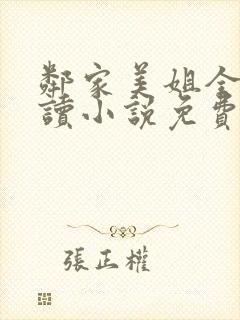 鄰家美姐全
讀小說免費
張正權